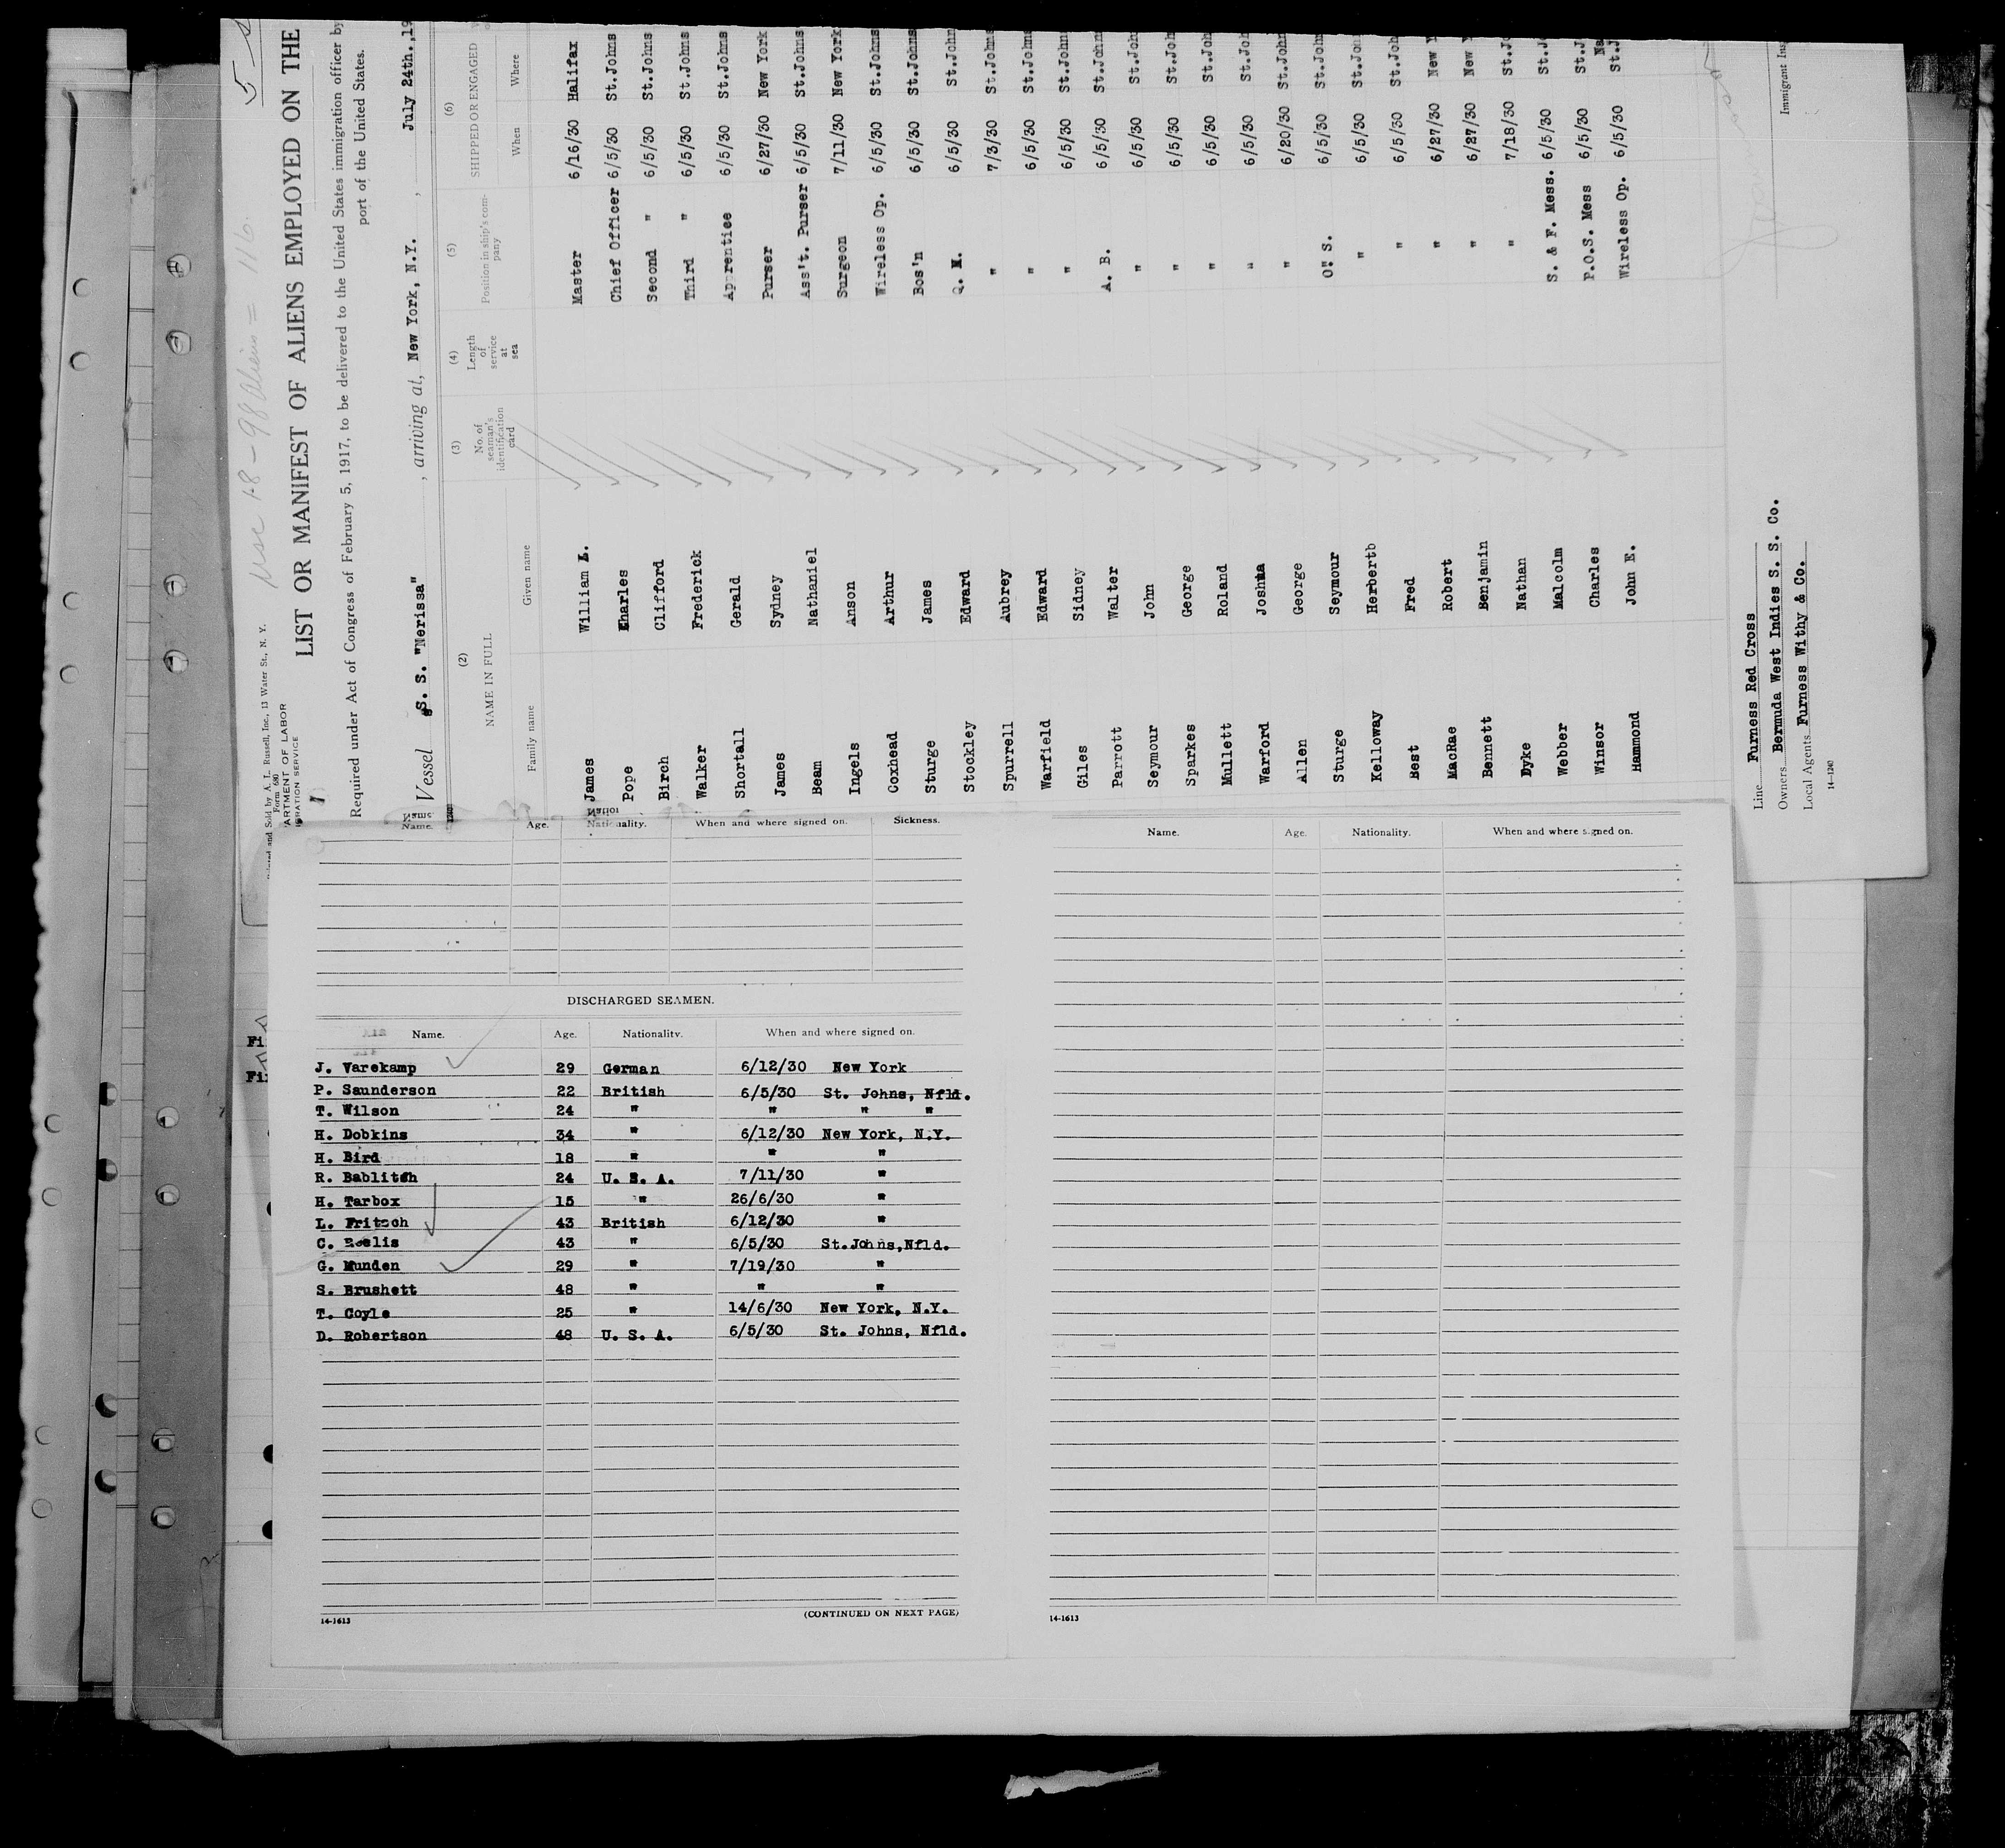 5
98 Aliens = 116.
Sold by A. L. Russell, Inc., 13 Water St., N. Y.
Form 680
ARTMENT OF LABOR
GRATION SERVICE
LIST OR MANIFEST OF ALIENS EMPLOYED ON THE
Required under Act of Congress of February 5, 1917, to be delivered to the United States immigration officer by
port of the United States.
Vessel S. S. "Nerissa" , arriving at, New York, N.Y. , July 24th.,19
(2) (3) (4) (5) (6)
NAME IN FULL No. of seaman's identification card Length of service at sea Position in ship's company SHIPPED OR ENGAGED
Family name Given name When Where
James William L. Master 6/16/30 Halifax
Pope Charles Chief Officer 6/5/30 St.Johns
Birch Clifford Second " 6/5/30 St.Johns
Walker Frederick Third " 6/5/30 St.Johns
Shortall Gerald Apprentice 6/5/30 St.Johns
James Sydney Purser 6/27/30 New York
Beam Nathaniel Ass't. Purser 6/5/30 St.Johns
Ingels Anson Surgeon 7/11/30 New York
Coxhead Arthur Wireless Op. 6/5/30 St.Johns
Sturge James Bos'n 6/5/30 St.Johns
Stockley Edward Q. M. 6/5/30 St.John
Spurrell Aubrey " 7/3/30 St.Johns
Warfield Edward " 6/5/30 St.John
Giles Sidney " 6/5/30 St.John
Parrott Walter A. B. 6/5/30 St.John
Seymour John " 6/5/30 St.Joh
Sparkes George " 6/5/30 St.Joh
Mullett Roland " 6/5/30 St.Joh
Warford Joshua " 6/5/30 St.Joh
Allen George " 6/20/30 St.John
Sturge Seymour O. S. 6/5/30 St.John
Kelloway Herbertb " 6/5/30 St.Joh
Best Fred " 6/5/30 St.Joh
MacRae Robert " 6/27/30 New Y
Bennett Benjamin " 6/27/30 New Y
Dyke Nathan " 7/18/30 St.Jo
Webber Malcolm S. & F. Mess. 6/5/30 St.J
Winsor Charles P.O.S. Mess 6/5/30 St.J
Hammond John E. Wireless Op. 6/5/30 St.J
Line Furness Red Cross
Owners Bermuda West Indies S. S. Co.
Local Agents Furness Withy & Co.
14-1240
Immigrant Ins
Name. Age. Nationality. When and where signed on. Sickness.
DISCHARGED SEAMEN.
Name. Age. Nationality. When and where signed on.
J. Varekamp 29 German 6/12/30 New York
P. Saunderson 22 British 6/5/30 St. Johns, Nfld.
T. Wilson 24 " " " "
H. Dobkins 34 " 6/12/30 New York, N.Y.
H. Bird 18 " " "
R. Bablitch 24 U. S. A. 7/11/30 "
H. Tarbox 15 " 26/6/30 "
L. Fritsch 43 British 6/12/30 "
C. 43 " 6/5/30 St.Johns,Nfld.
G. Munden 29 " 7/19/30 "
S. Brushett 48 " " "
T. Coyle 25 " 14/6/30 New York, N.Y.
D. Robertson 48 U. S. A. 6/5/30 St. Johns, Nfld.
14-1613 (CONTINUED ON NEXT PAGE)
Name. Age. Nationality. When and where signed on.
14-1613